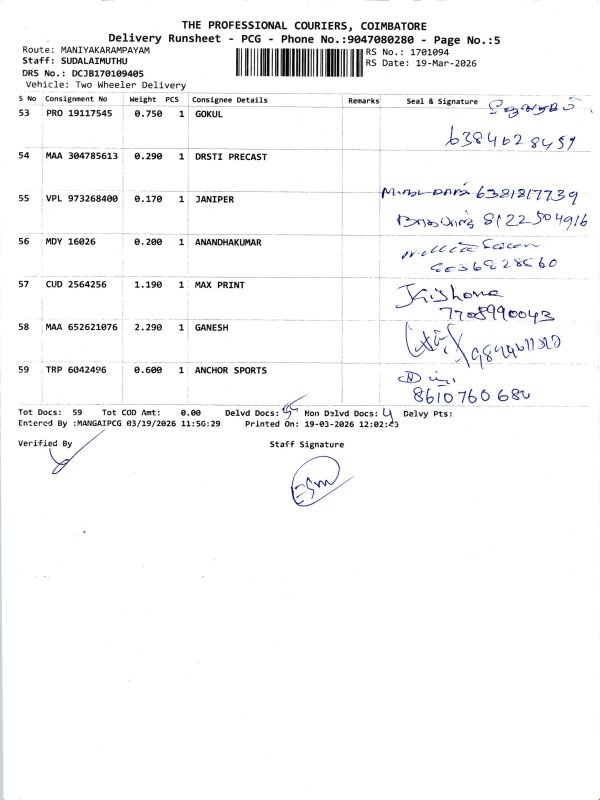 THE PROFESSIONAL COURIERS, COIMBATORE
Delivery Runsheet - PCG - Phone No.:9047080280 - Page No.:5
Route: MANIYAKARAMPAYAM
RS No.: 1701094
Staff: SUDALAIMUTHU
RS Date: 19-Mar-2026
DRS No.: DCJB170109405
Vehicle: Two Wheeler Delivery
S No Consignment No Weight PCS Consignee Details Remarks Seal & Signature
53 PRO 19117545 0.750 1 GOKUL
6384628457
54 MAA 304785613 0.290 1 DRSTI PRECAST
55 VPL 973268400 0.170 1 JANIPER 6381817739
8122504916
56 MDY 16026 0.200 1 ANANDHAKUMAR
57 CUD 2564256 1.190 1 MAX PRINT
7708990043
58 MAA 652621076 2.290 1 GANESH
59 TRP 6042496 0.600 1 ANCHOR SPORTS
8610760680
Tot Docs: 59 Tot COD Amt: 0.00 Delvd Docs: 55 Non Delvd Docs: 4 Delvy Pts:
Entered By :MANGAIPCG 03/19/2026 11:56:29 Printed On: 19-03-2026 12:02:
Verified By Staff Signature